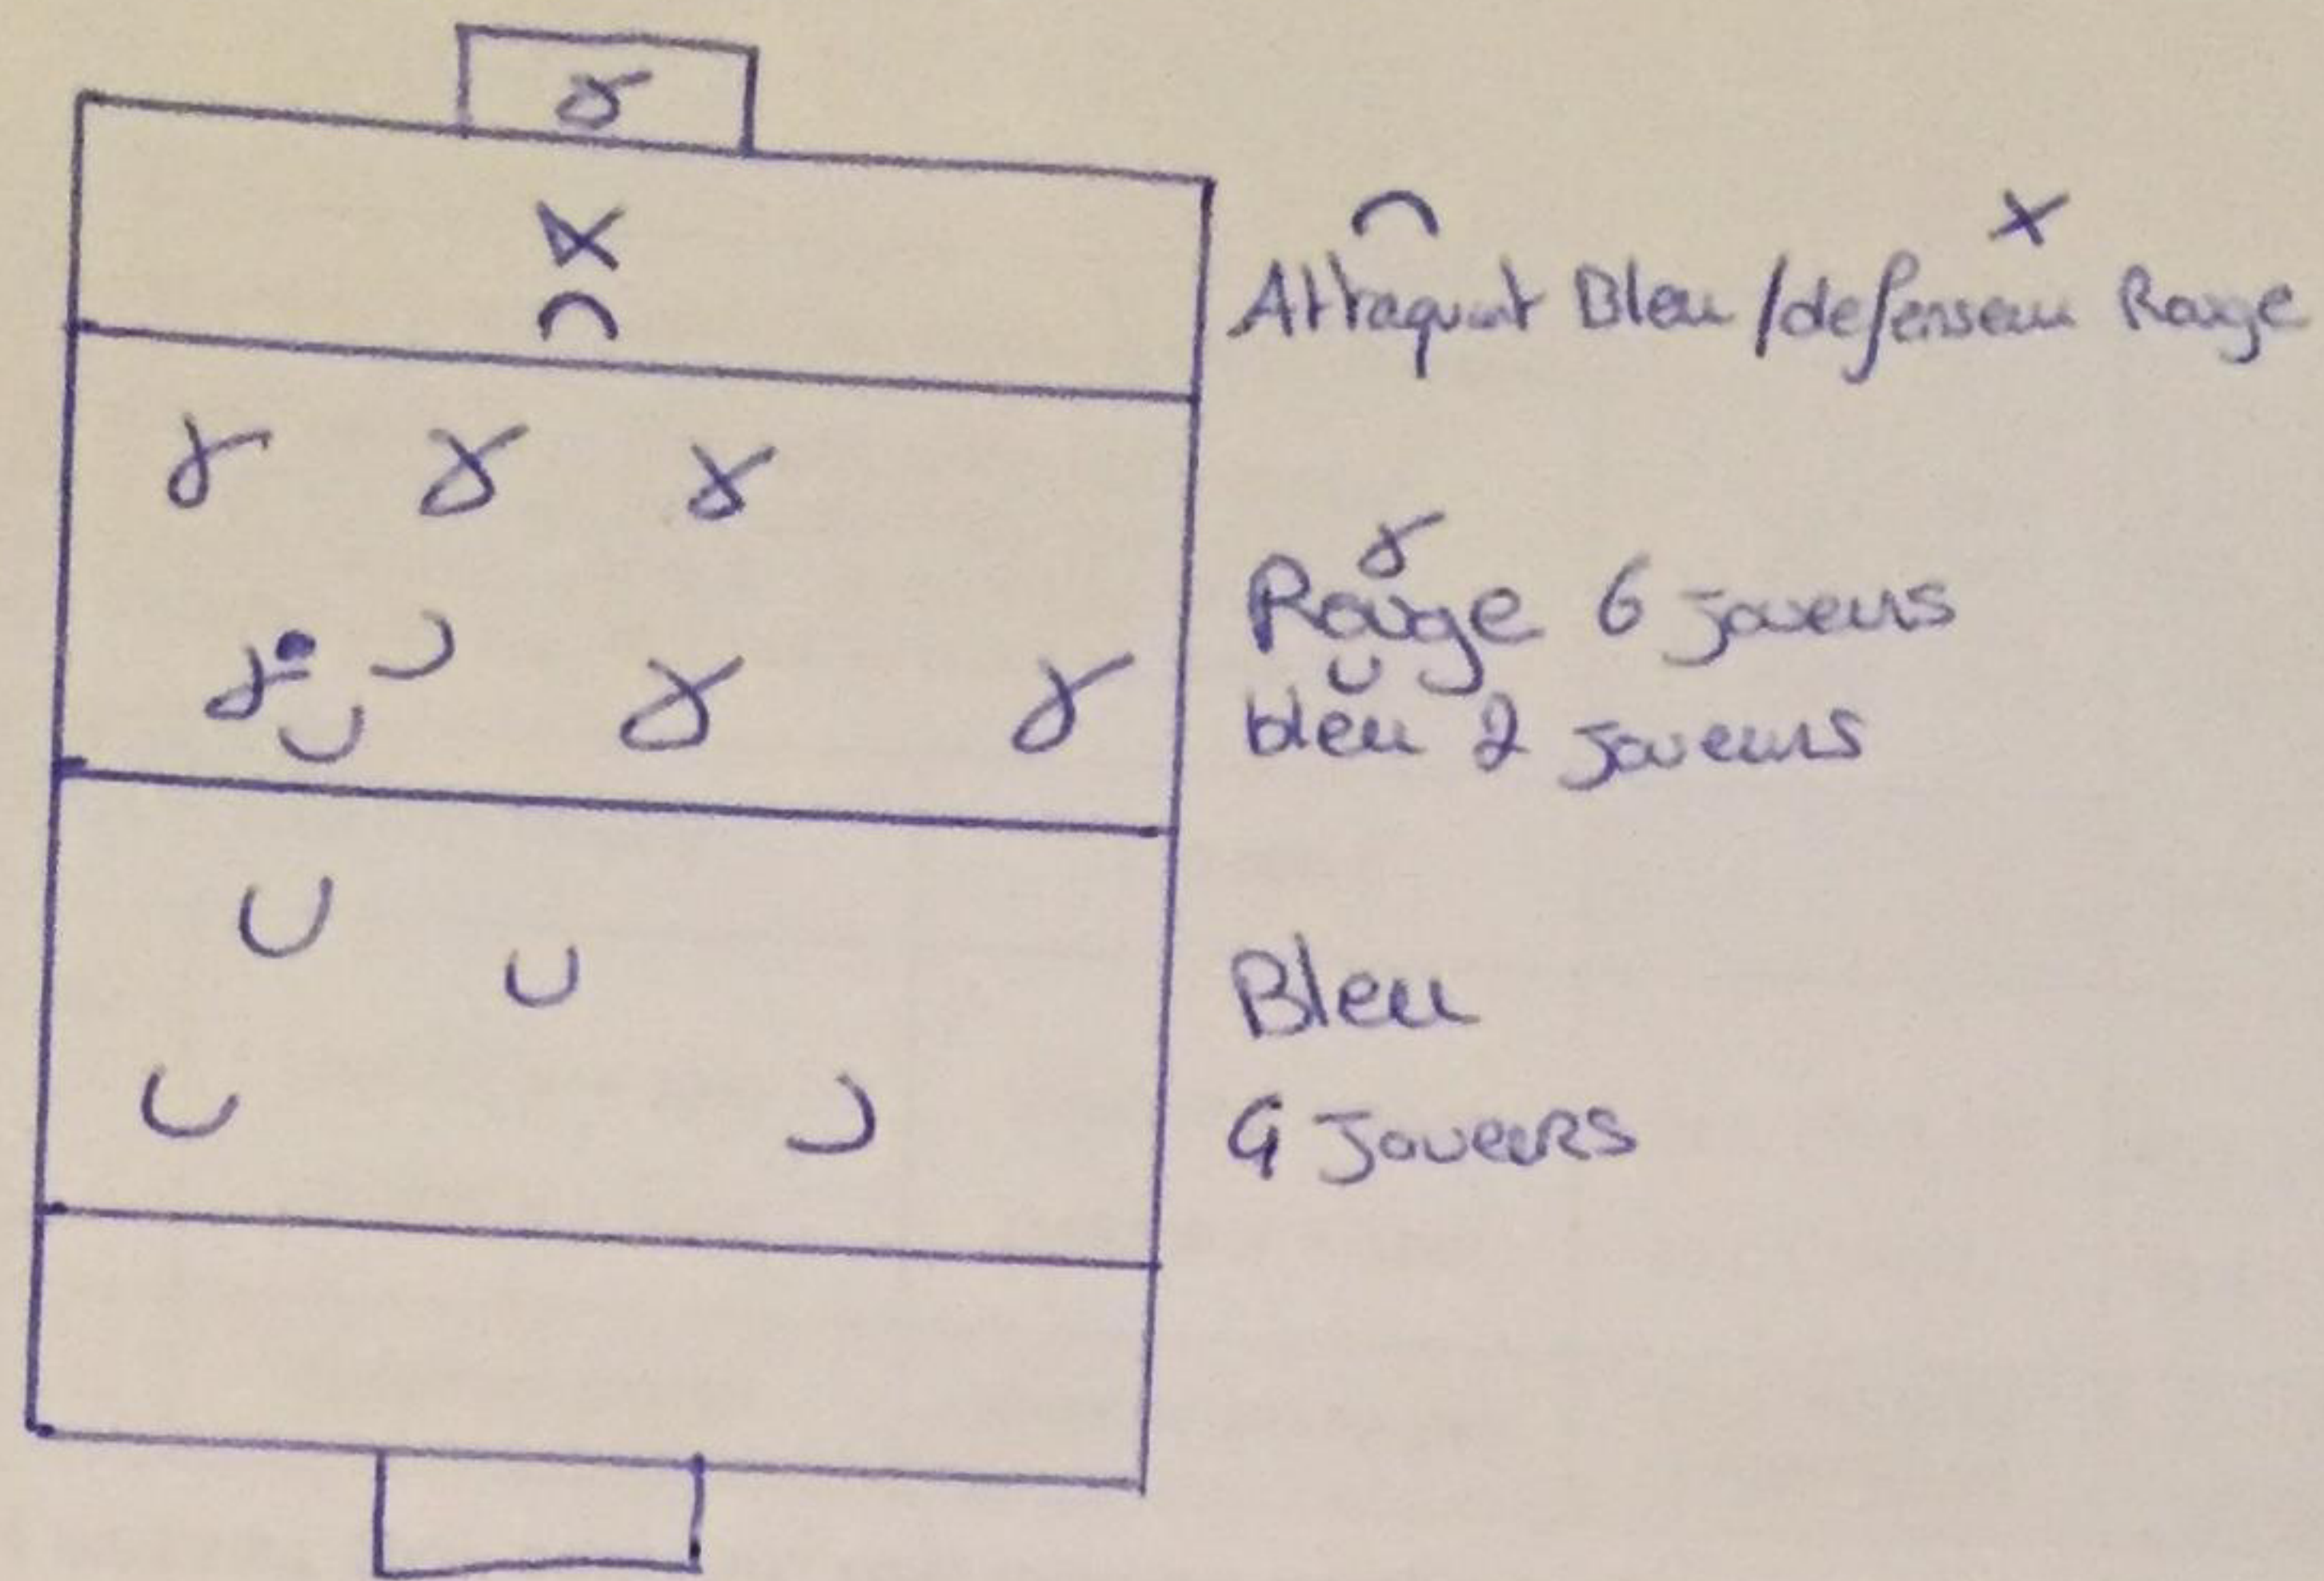 Attaquant Bleu / defenseur Rouge
Rouge 6 joueurs
bleu 2 joueurs
Bleu
4 Joueurs